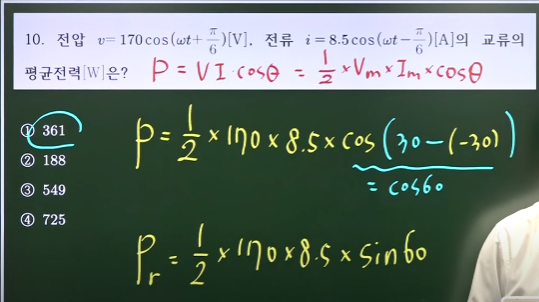 10. 전압 v=170cos(ωt+π/6)[V]. 전류 i=8.5cos(ωt-π/6)[A]의 교류의
평균전력[W]은? P = VI·cosθ = 1/2 × Vm × Im × cosθ
① 361
② 188
③ 549
④ 725
P = 1/2 × 170 × 8.5 × cos(30-(-30))
= cos60
Pr = 1/2 × 170 × 8.5 × sin60